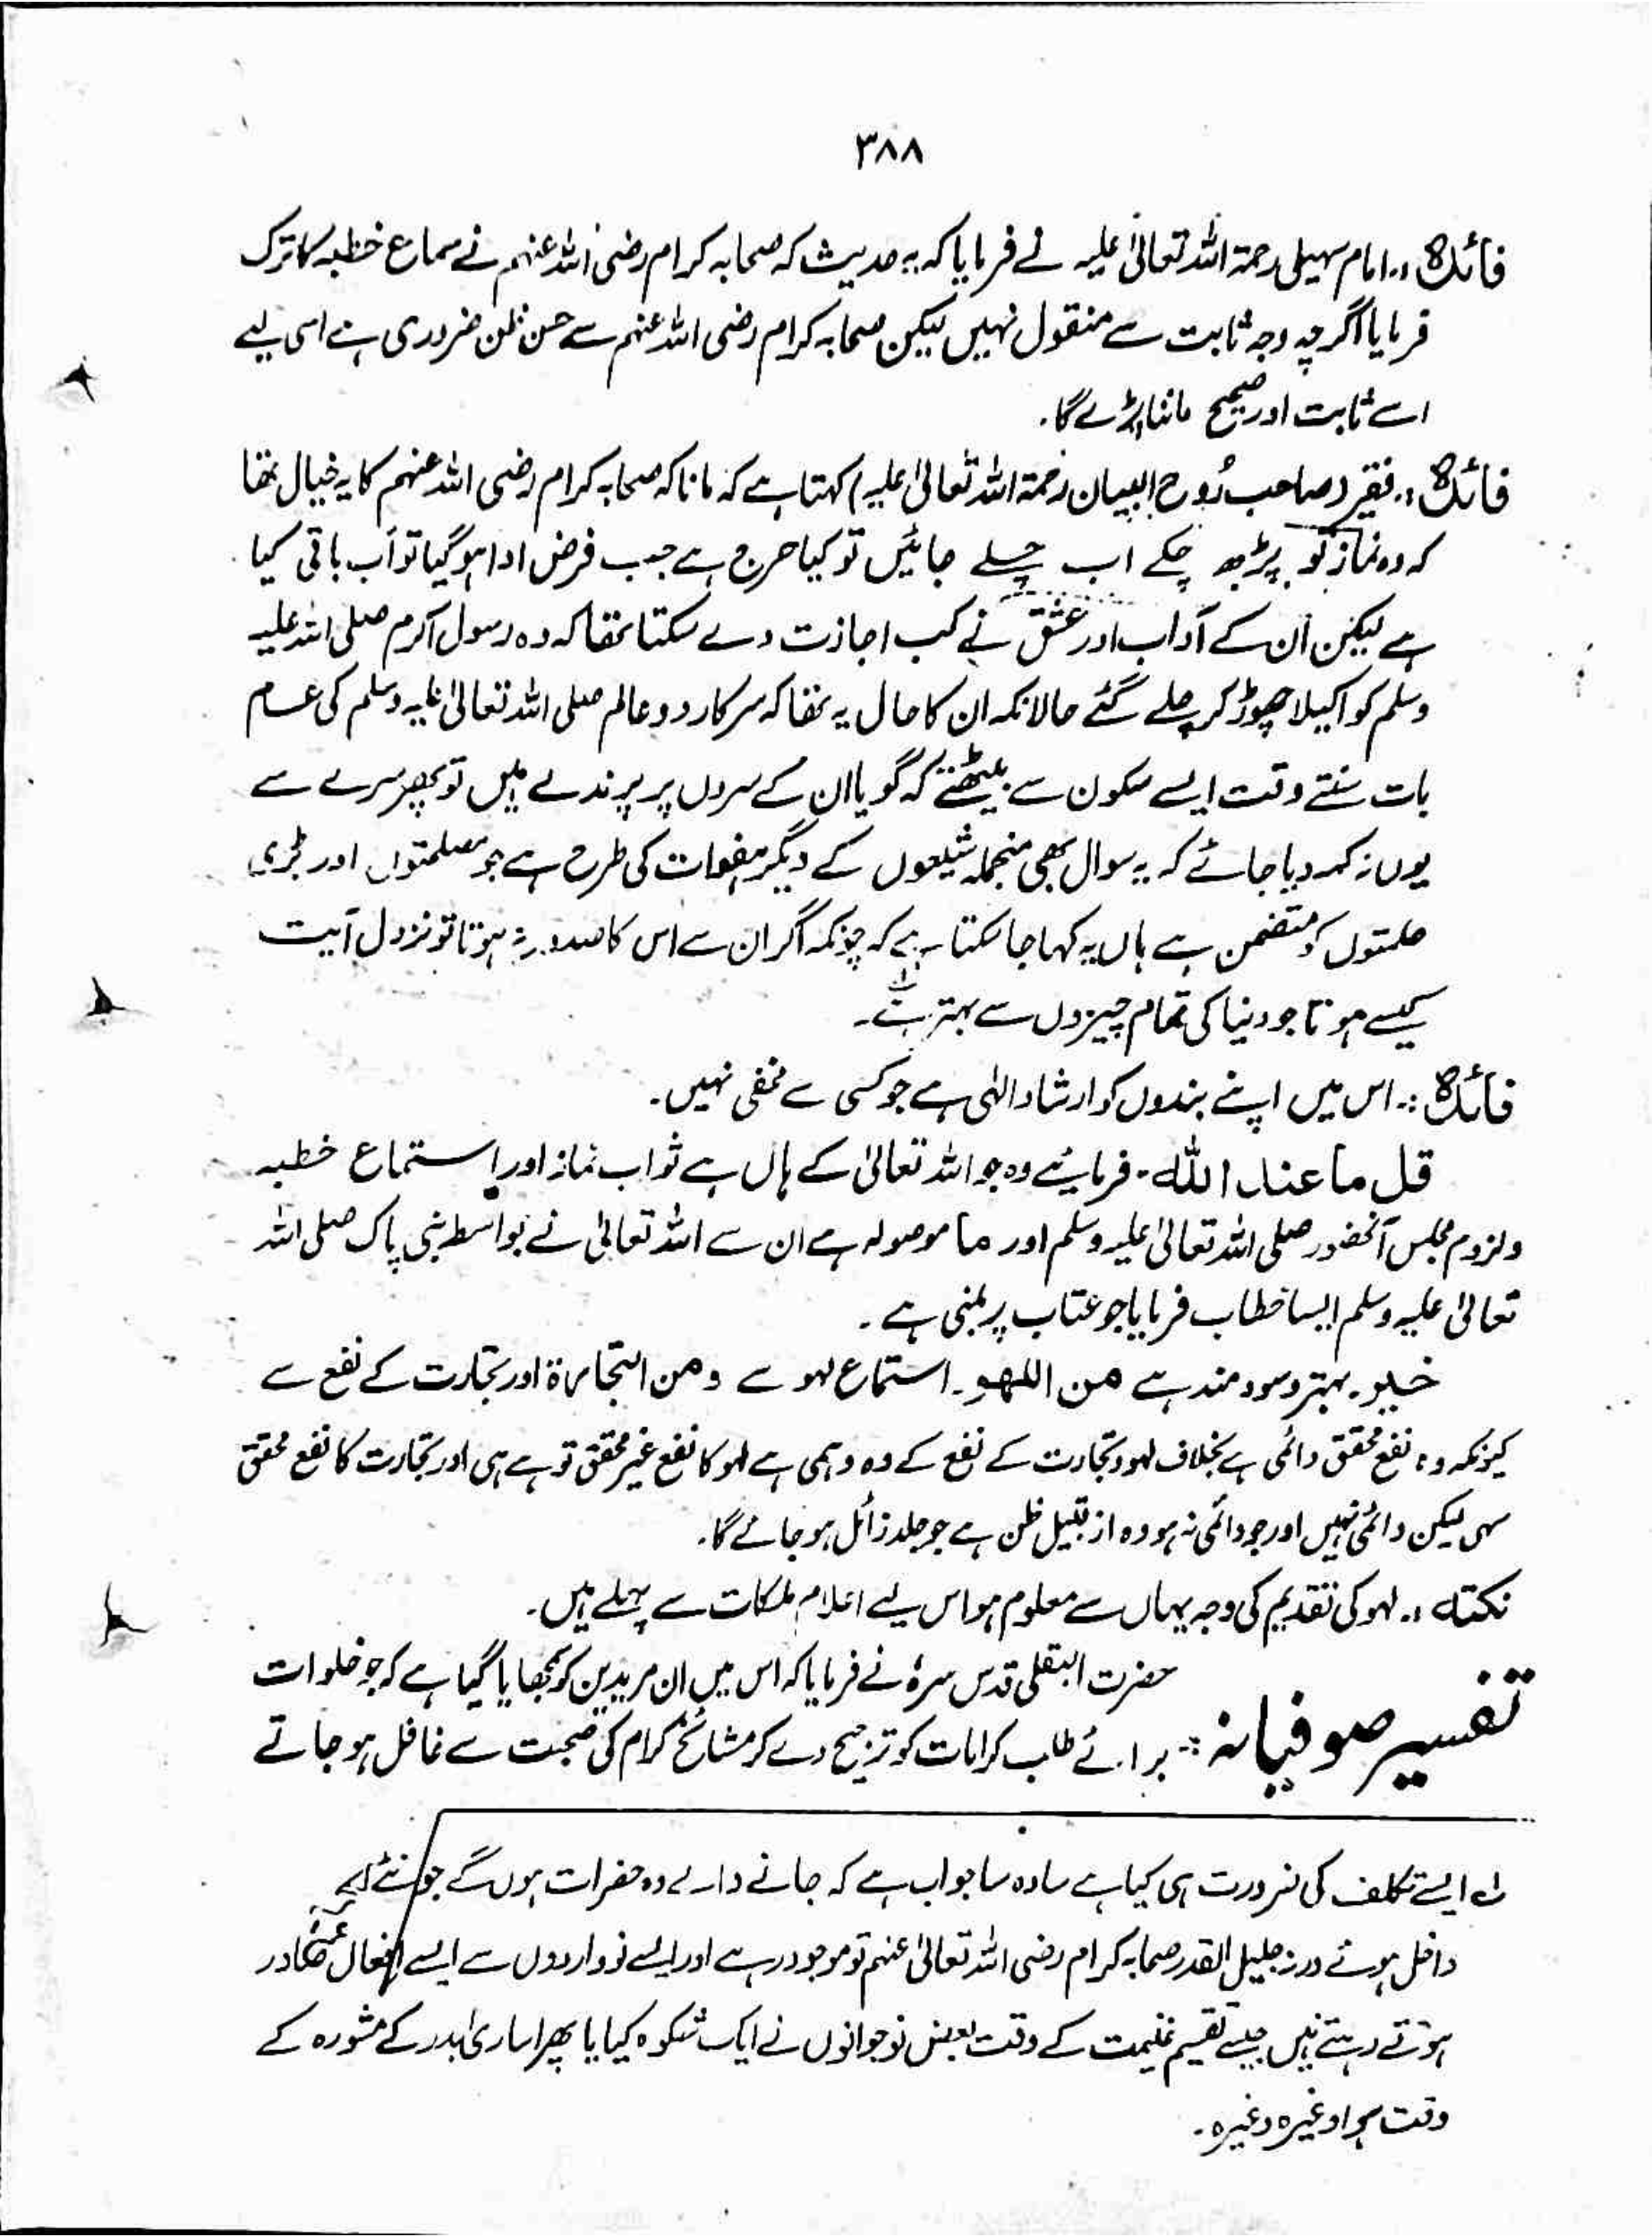 ۳۸۸
فائدہ :۔ امام سہیلی رحمۃ اللہ تعالیٰ علیہ نے فرمایا کہ یہ حدیث کہ صحابہ کرام رضی اللہ عنہم نے سماع خطبہ کا ترک
فرمایا اگرچہ وجہ ثابت سے منقول نہیں لیکن صحابہ کرام رضی اللہ عنہم سے حسن ظن ضروری ہے اسی لیے
اسے ثابت اور صحیح ماننا پڑے گا۔
فائدہ :۔ فقیر (صاحب رُوح البیان رحمۃ اللہ تعالیٰ علیہ) کہتا ہے کہ مانا کہ صحابہ کرام رضی اللہ عنہم کا یہ خیال تھا
کہ وہ نماز تو پڑھ چکے اب چلے جائیں تو کیا حرج ہے جب فرض ادا ہو گیا تو اب باقی کیا
ہے لیکن ان کے آداب اور عشق نے کب اجازت دے سکتا تھا کہ وہ رسول اکرم صلی اللہ علیہ
وسلم کو اکیلا چھوڑ کر چلے گئے حالانکہ ان کا حال یہ تھا کہ سرکار دو عالم صلی اللہ تعالیٰ علیہ وسلم کی عام
بات سنتے وقت ایسے سکون سے بیٹھتے کہ گویا ان کے سروں پر پرندے ہیں تو پھر سرے سے
یوں نہ کہہ دیا جائے کہ یہ سوال بھی منجملہ شیعوں کے دیگر ہفوات کی طرح ہے جو مصلحتوں اور بڑی
حکمتوں کو متضمن ہے ہاں یہ کہا جا سکتا ہے کہ چونکہ اگر ان سے اس کا صدور نہ ہوتا تو نزول آیت
کیسے ہوتا جو دنیا کی تمام چیزوں سے بہتر ہے۔
فائدہ :۔ اس میں اپنے بندوں کو ارشاد الٰہی ہے جو کسی سے مخفی نہیں۔
قل ما عند اللہ ۔ فرمائیے وہ جو اللہ تعالیٰ کے ہاں ہے ثواب نماز اور استماع خطبہ
ولزوم مجلس آنحضور صلی اللہ تعالیٰ علیہ وسلم اور ما موصولہ ہے ان سے اللہ تعالیٰ نے بواسطہ نبی پاک صلی اللہ
تعالیٰ علیہ وسلم ایسا خطاب فرمایا جو عتاب پر مبنی ہے ۔
خیر۔ بہتر و سود مند ہے من اللھو۔ استماع لہو سے ومن التجارۃ اور تجارت کے نفع سے
کیونکہ وہ نفع محقق دائمی ہے بخلاف لہو و تجارت کے نفع کے وہ وہمی ہے لہو کا نفع غیر محقق تو ہے ہی اور تجارت کا نفع محقق
سہی لیکن دائمی نہیں اور جو دائمی نہ ہو وہ از قبیل ظن ہے جو جلد زائل ہو جائے گا۔
نکتہ :۔ لہو کی تقدیم کی وجہ یہاں سے معلوم ہو اس لیے اعلام ملکات سے پہلے ہیں۔
حضرت البقلی قدس سرہٗ نے فرمایا کہ اس میں ان مریدین کو سمجھایا گیا ہے کہ جو خلوات
تفسیر صوفیانہ :۔ برائے طلب کرامات کو ترجیح دے کر مشائخ کرام کی صحبت سے غافل ہو جاتے
ایسے تکلف کی ضرورت ہی کیا ہے سادہ سا جواب ہے کہ جانے والے وہ حضرات ہوں گے جو نئے
داخل ہوئے ورنہ جلیل القدر صحابہ کرام رضی اللہ تعالیٰ عنہم تو موجود رہے اور ایسے نوواردوں سے ایسے افعال صادر
ہوتے رہتے ہیں جیسے تقسیم غنیمت کے وقت بعض نوجوانوں نے ایک شکوہ کیا یا پھر اساریٰ بدر کے مشورہ کے
وقت ہوا وغیرہ وغیرہ۔